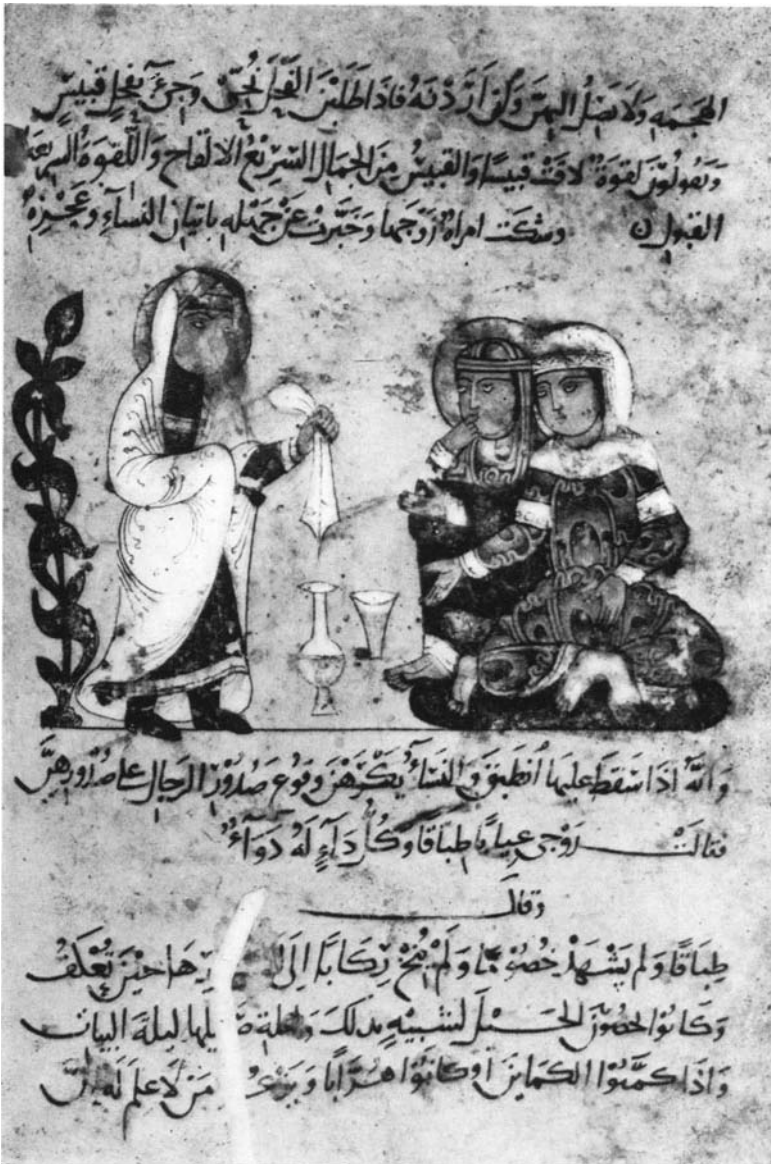 الهجمه ولا يصل اليهن اردنه فاذا طلبن الفحل نحى وجئ بفحل قبيس
ويقولون لقوة لاقت قبيسا والقبيس من الجمال السريع الالقاح واللقوة السريعة
القبول وشكت امراة زوجها وخبرت عن جهله باتيان النساء وعجزه
وانه اذا سقط عليها انطبق والنساء يكرهن وقوع صدور الرجال على صدورهن
فقالت زوجى عياياء طباقاء وكل داء له دواء
وقال
طباقا ولم يشهد ولم ينخ ركابا الى حين
وكانوا الخيل بذلك ليلة البيات
واذا كمنوا او كانوا هرابا من لا علم له